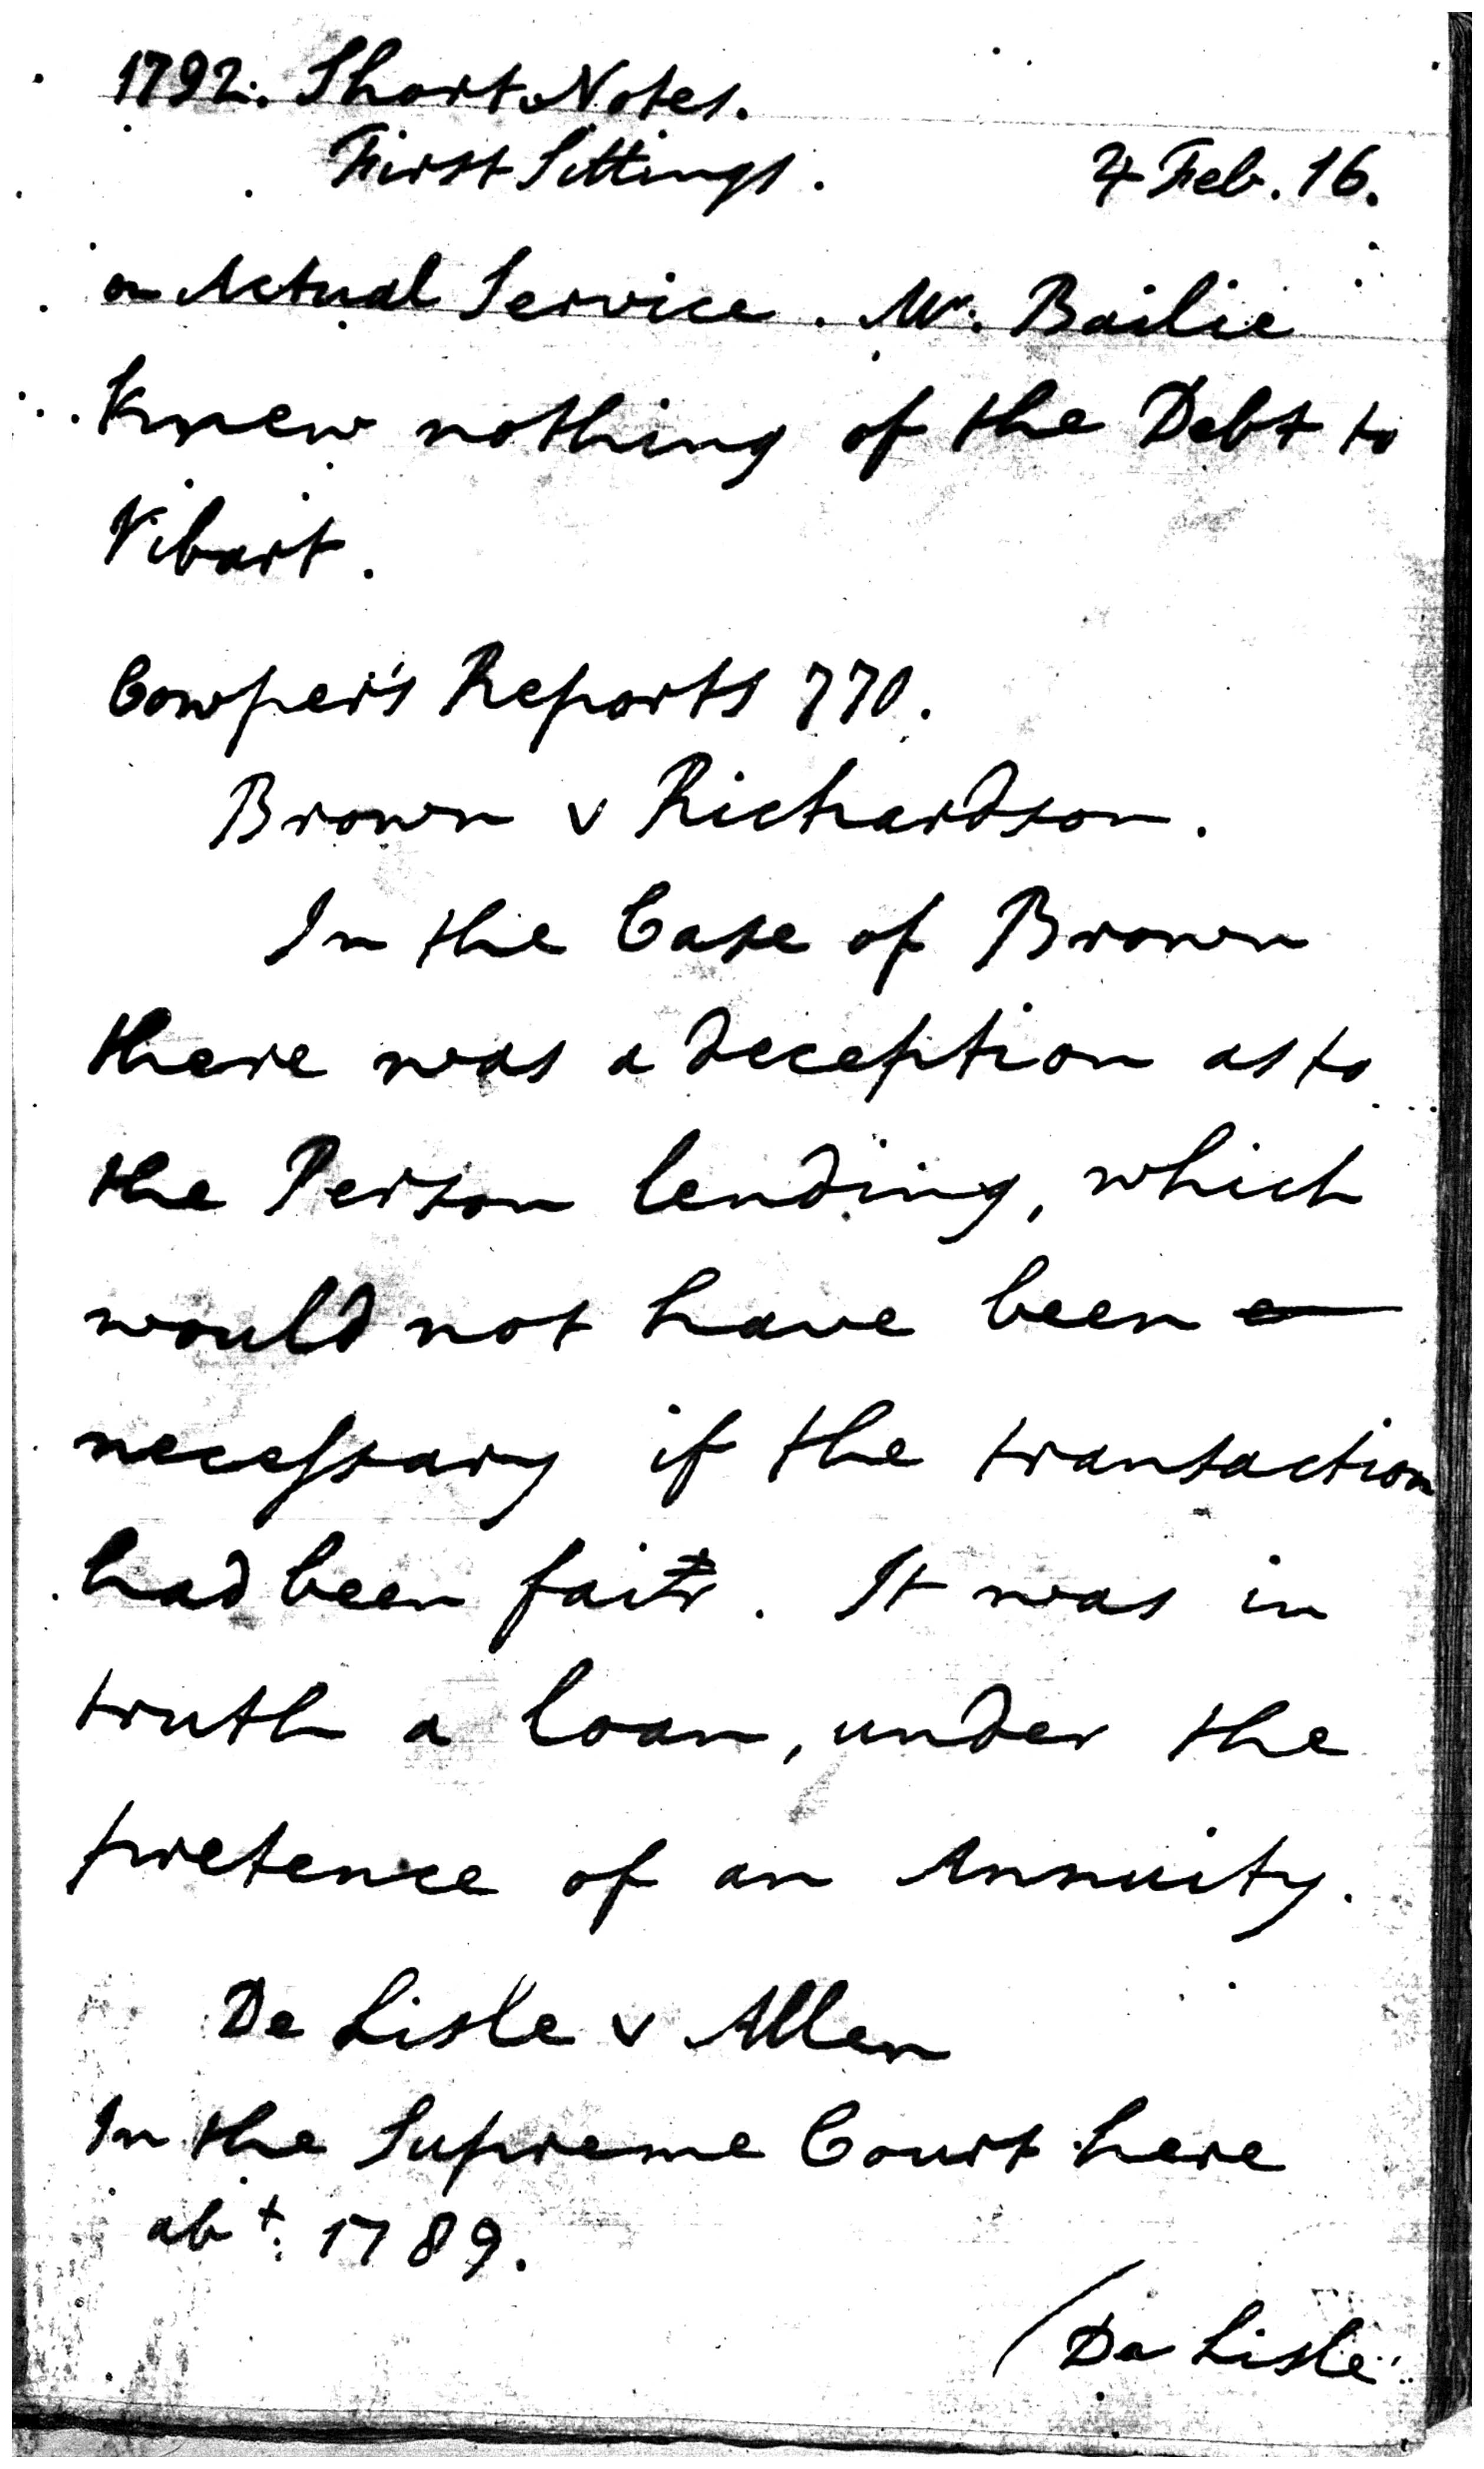 1792. Short Notes.
First Sittings. 4 Feb. 16.
on Actual Service. Mr. Bailie
knew nothing of the Debt to
Vibart.
Cowper's Reports 770.
Brown v Richardson.
In the Case of Brown
there was a deception as to
the Person lending, which
would not have been
necessary if the transaction
had been fair. It was in
truth a loan, under the
pretence of an Annuity.
De Lisle v Allen
In the Supreme Court here
abt. 1789.
(De Lisle